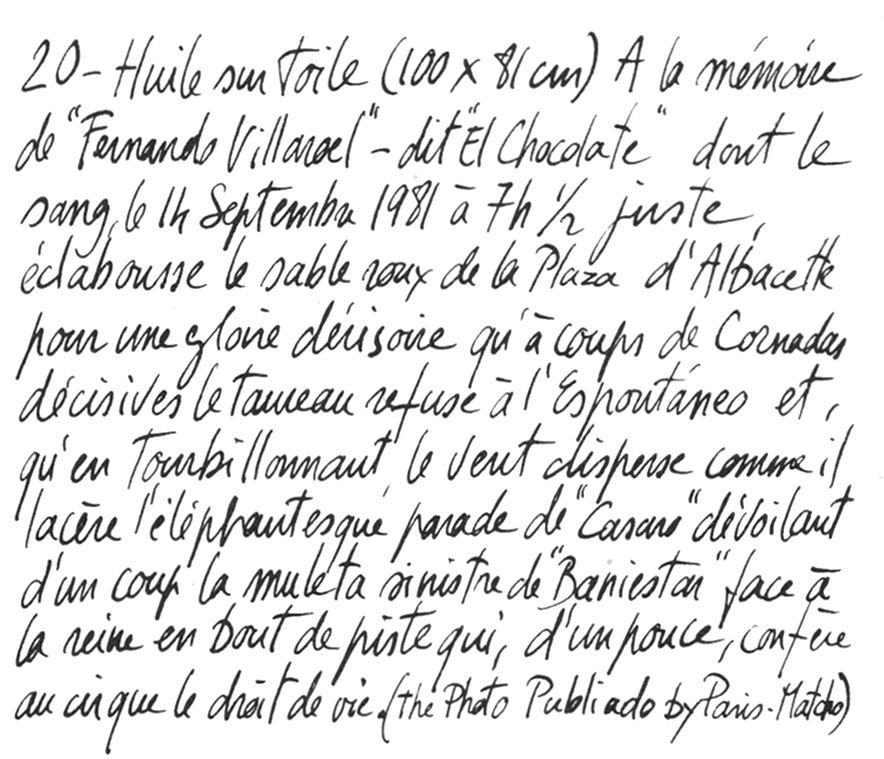 20 - Huile sur toile (100 x 81 cm) A la mémoire
de "Fernando Villaroel" - dit "El Chocolate" dont le
sang, le 14 Septembre 1981 à 7h 1/2 juste,
éclabousse le sable roux de la Plaza d'Albacette
pour une gloire dérisoire qu'à coups de Cornadas
décisives le taureau refuse à l'Espontáneo et,
qu'en tourbillonnant, le vent disperse comme il
lacère l'éléphantesque parade de "Casaro" dévoilant
d'un coup la muleta sinistre de "Baniestar" face à
la reine en bout de piste qui, d'un pouce, confère
au cirque le droit de vie. (the Photo Publiado by Paris-Matcho)